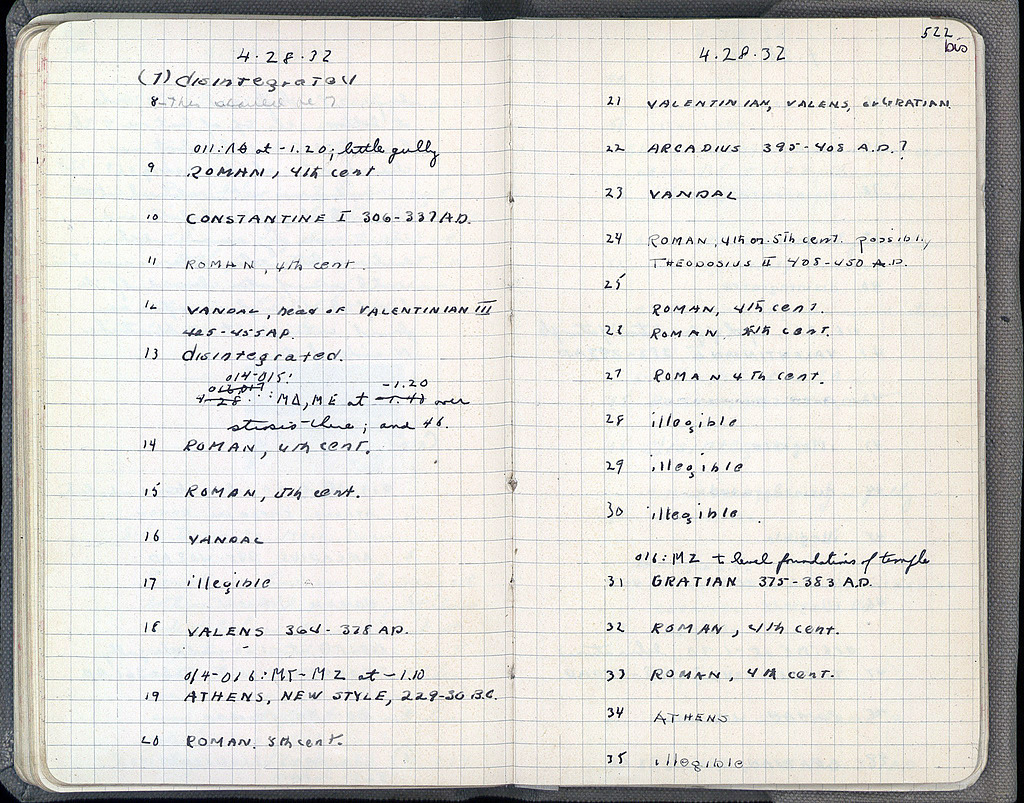 4·28·32
(7) disintegrated
8 This should be ?
011:ΛΘ at -1.20; little gully
9 ROMAN, 4th cent
10 CONSTANTINE I 306-337 A.D.
11 ROMAN, 4th cent.
12 VANDAL, head of VALENTINIAN III
425-455 A.D.
13 disintegrated.
014-015:
012,017
4-28 : ΜΔ, ΜΕ at -1.40 -1.20 over
stosis-line; and 46.
14 ROMAN, 4th cent.
15 ROMAN, 5th cent.
16 VANDAL
17 illegible
18 VALENS 364-378 A.D.
014-016: ΜΓ-ΜΖ at -1.10
19 ATHENS, NEW STYLE, 229-30 B.C.
20 ROMAN. 5th cent.
522
bis
4.28.32
21 VALENTINIAN, VALENS, or GRATIAN.
22 ARCADIUS 395-408 A.D.?
23 VANDAL
24 ROMAN, 4th or 5th cent. possibly
THEODOSIUS II 408-450 A.D.
25
ROMAN, 4th cent.
26 ROMAN, 4th cent.
27 ROMAN 4th cent.
28 illegible
29 illegible
30 illegible
016: ΜΖ + level foundations of temple
31 GRATIAN 375-383 A.D.
32 ROMAN, 4th cent.
33 ROMAN, 4th cent.
34 ATHENS
35 illegible